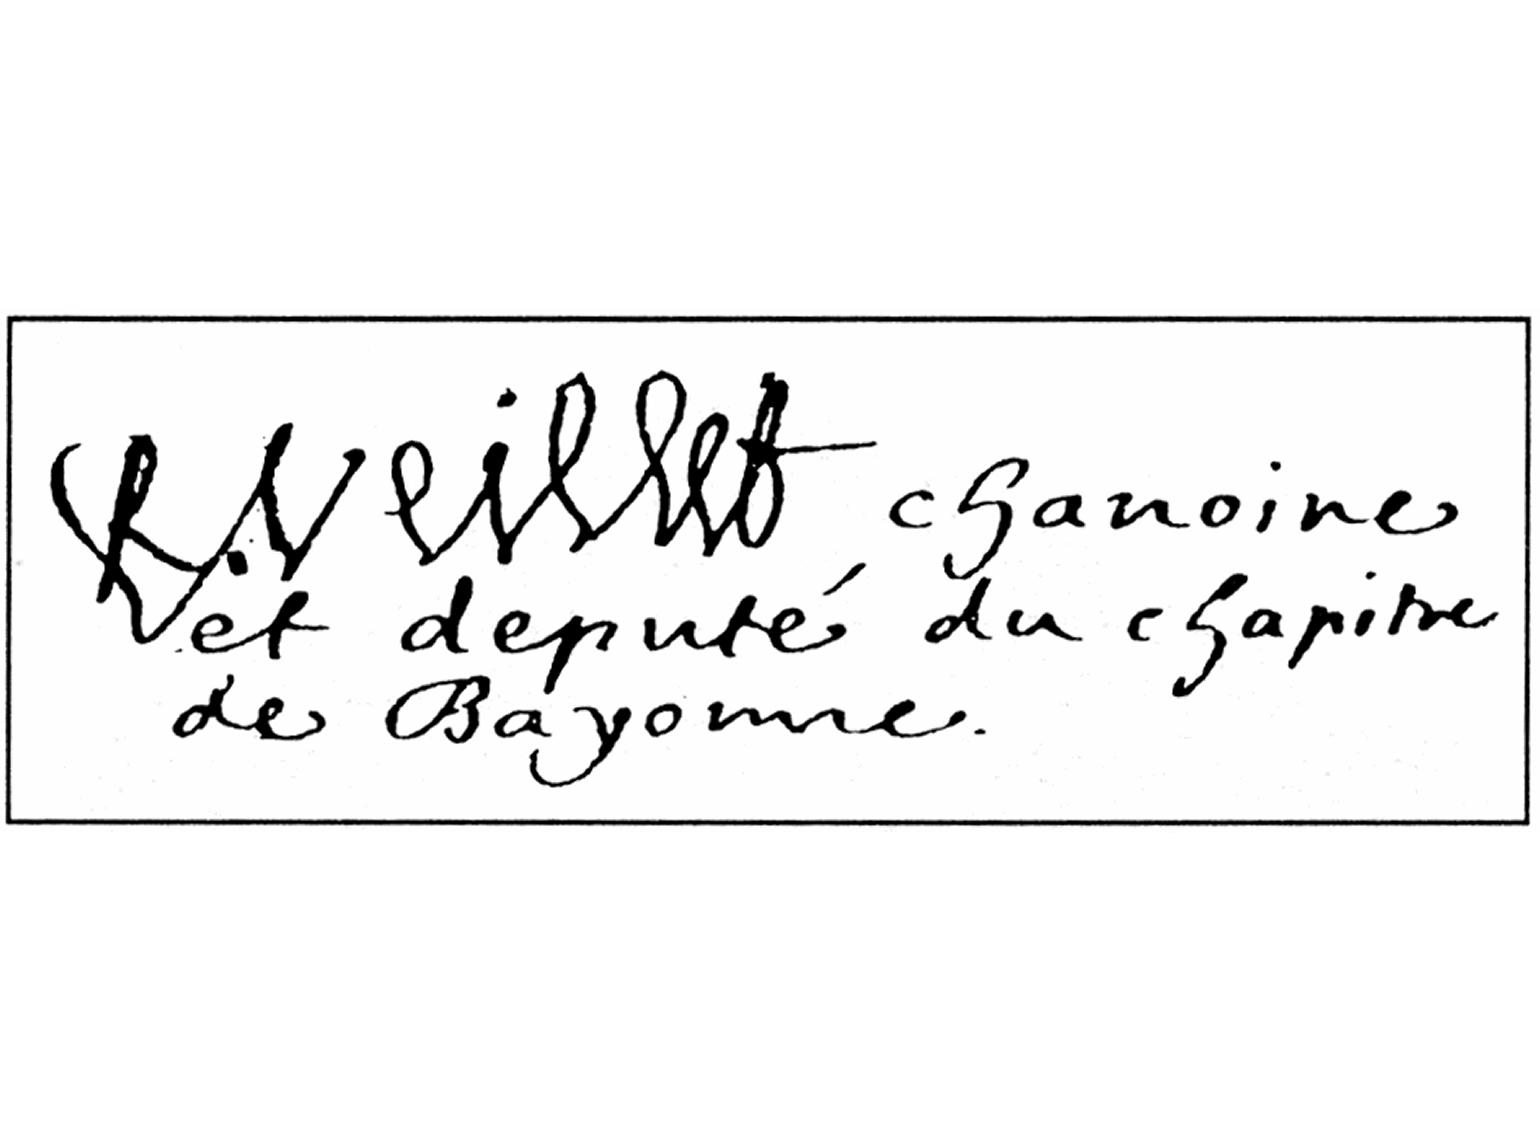 R. Veillet chanoine
et deputé du chapitre
de Bayonne.